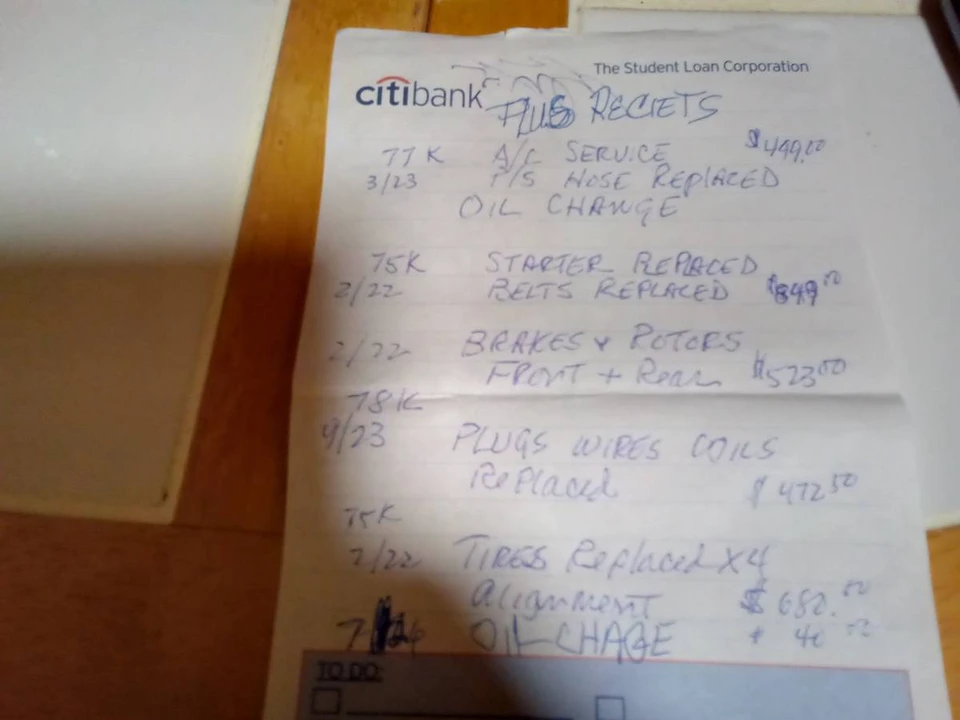 The Student Loan Corporation
citibank
PLUS RECIETS
77K A/C SERVICE $449.00
3/23 P/S HOSE REPLACED
OIL CHANGE
75K STARTER REPLACED
2/22 BELTS REPLACED $849.00
2/22 BRAKES + ROTORS
FRONT + Rear $523.00
78K
9/23 PLUGS WIRES COILS
Replaced $472.50
75K
2/22 TIRES Replaced X4
Alignment $682.00
OIL CHAGE
TO DO: